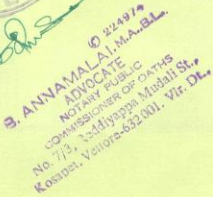 © 224974
B. ANNAMALAI, M.A., B.L.,
ADVOCATE
NOTARY PUBLIC
COMMISSIONER OF OATHS
No. 7/3, Reddiyappa Mudali St.,
Kosapet, Vellore-632 001. Vlr. Dt.,